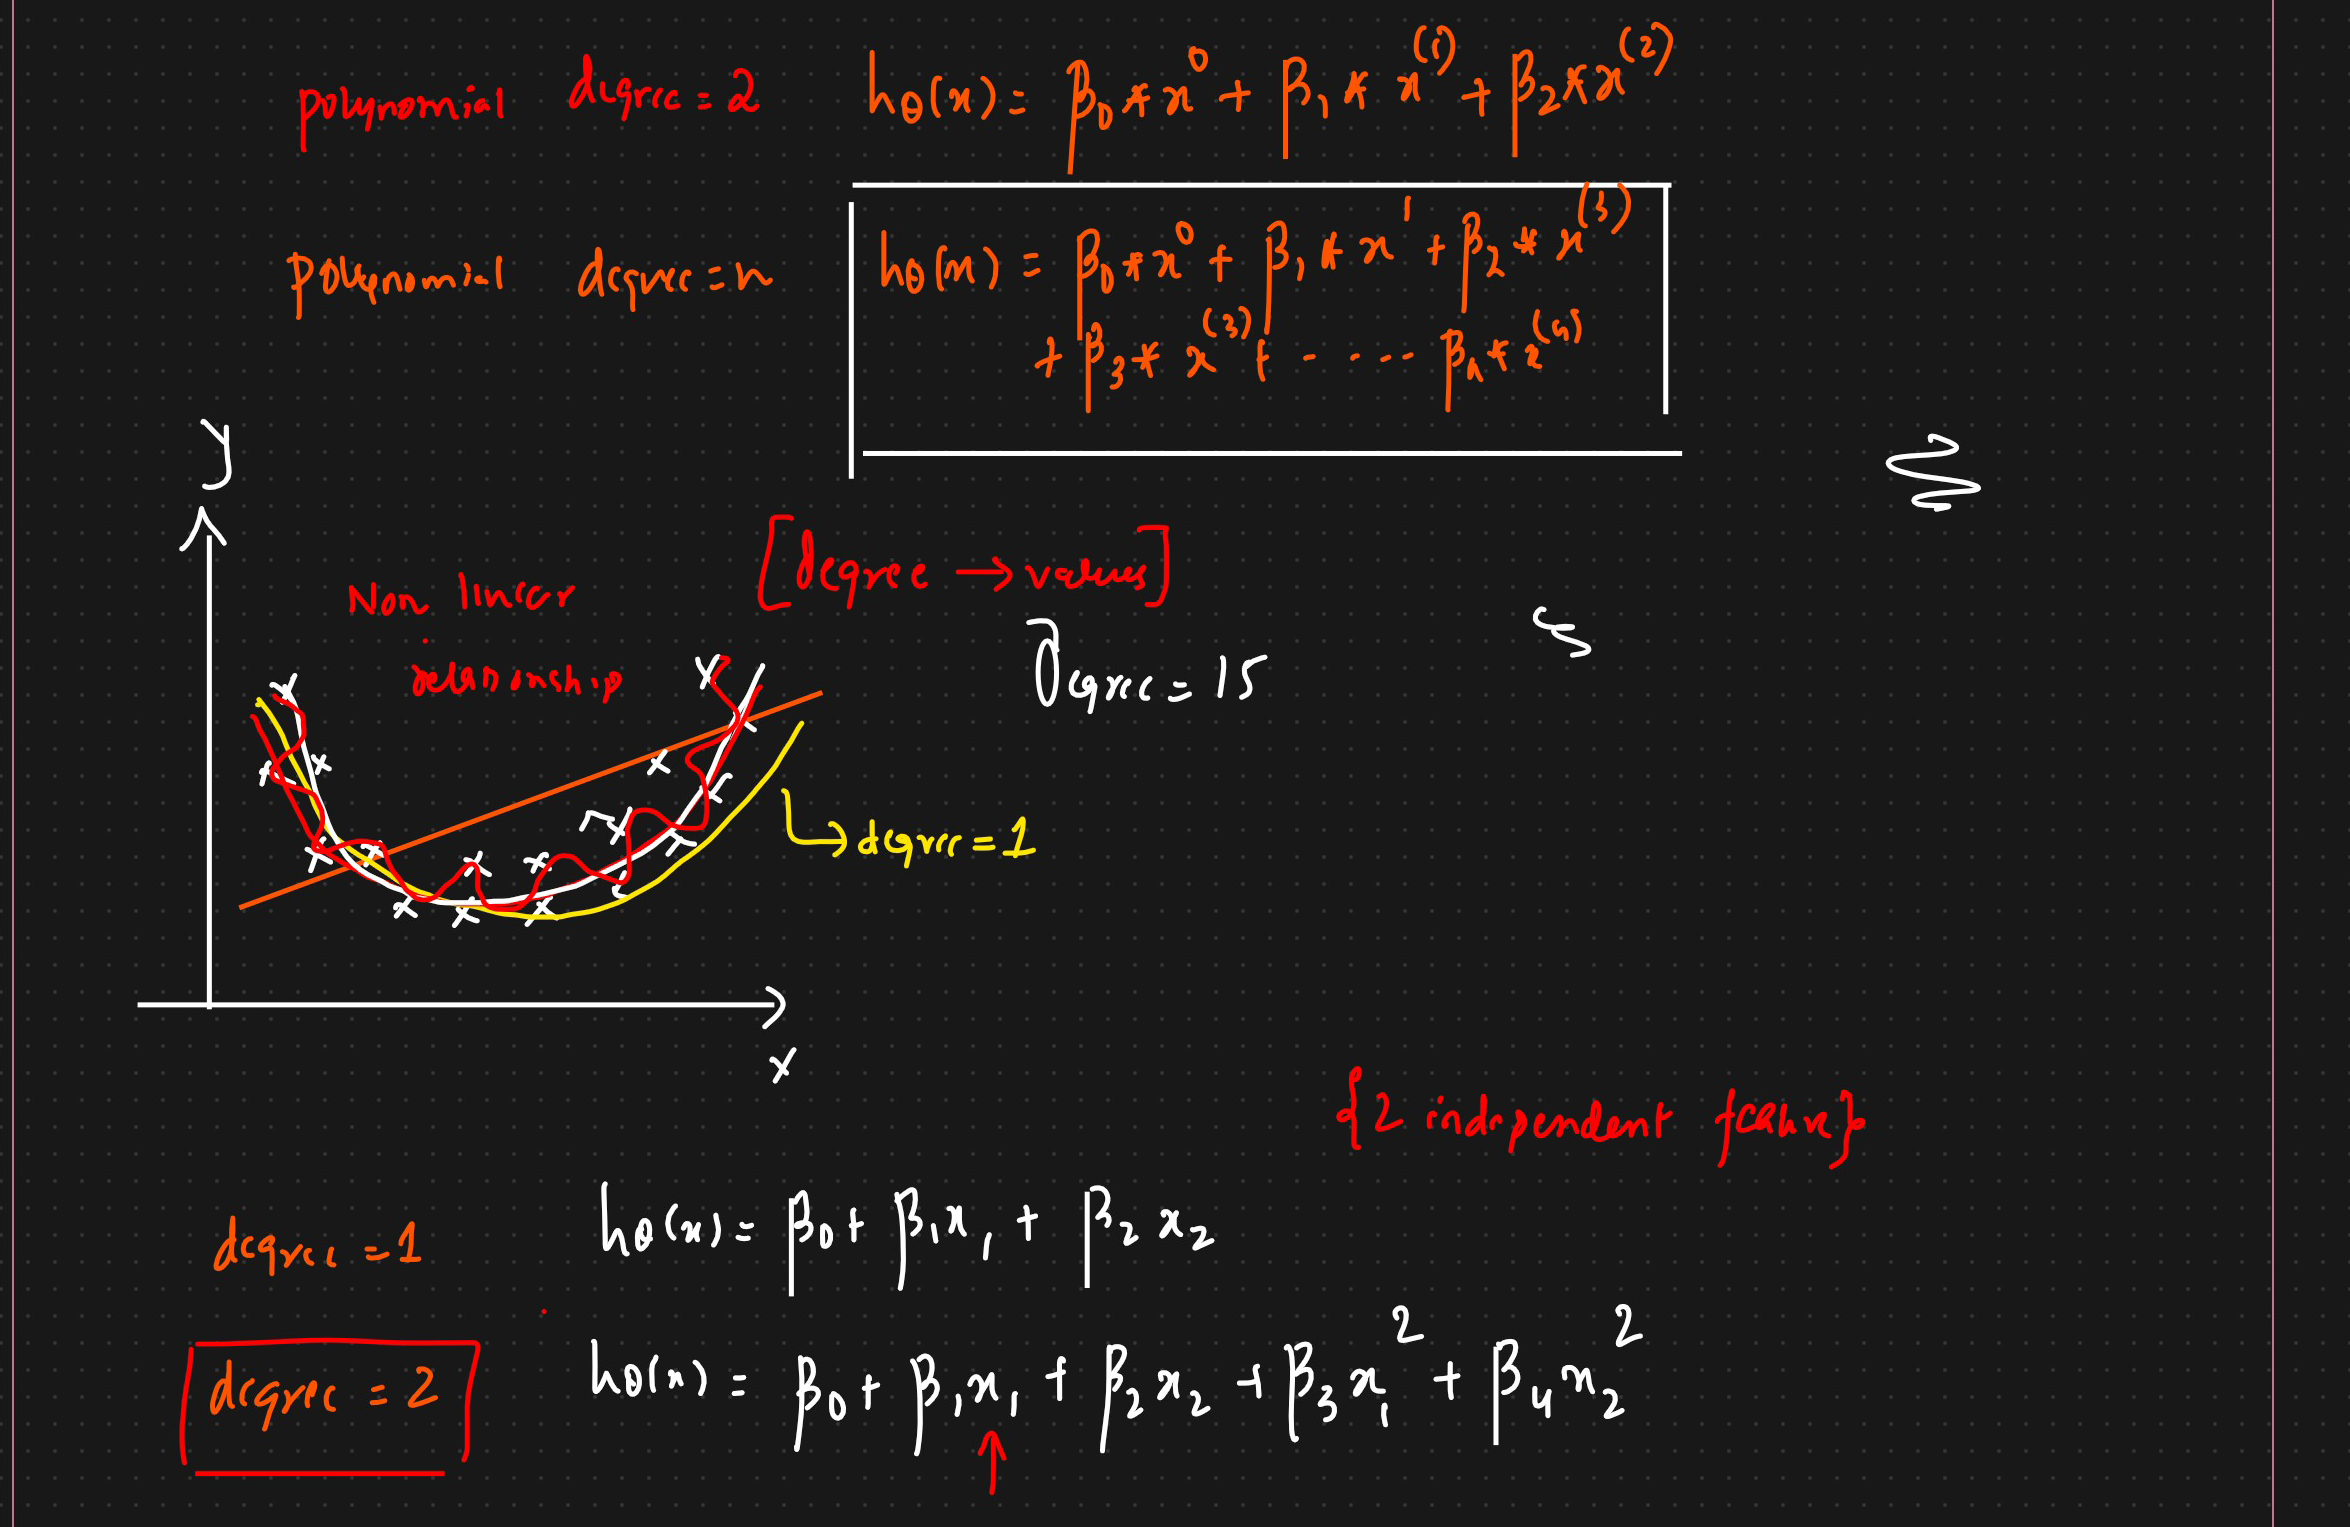 polynomial degree = 2 hθ(x) = β0 * x^0 + β1 * x^(1) + β2 * x^(2)
polynomial degree = n hθ(x) = β0 * x^0 + β1 * x^1 + β2 * x^(3)
+ β3 * x^(3) + ------ βn * x^(n)
y
[degree → values]
Non linear
relationship
Degree = 15
degree = 1
x
{2 independent feature}
degree = 1 hθ(x) = β0 + β1x1 + β2 x2
degree = 2 hθ(x) = β0 + β1x1 + β2x2 + β3x1^2 + β4x2^2